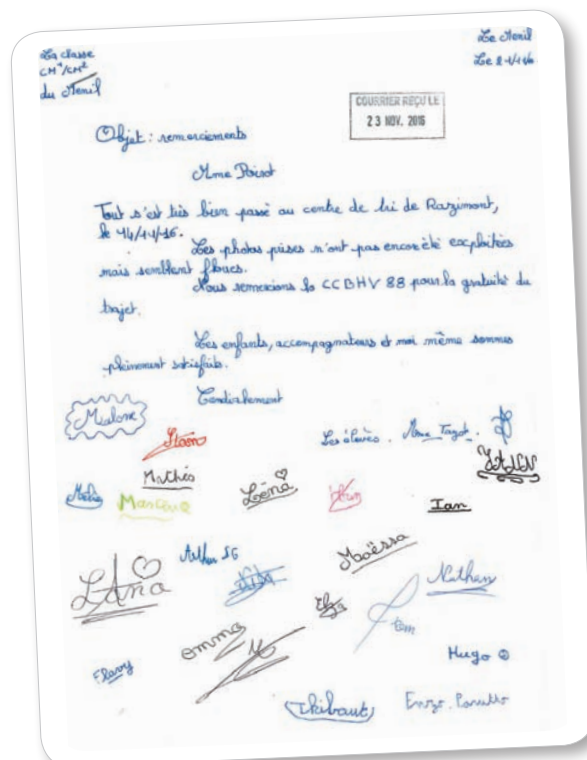 La classe
CM1/CM2
du Menil
Le Menil
Le
COURRIER REÇU LE
23 NOV. 2016
Objet : remerciements
Mme Poirot
Tout s'est très bien passé au centre de tri de Razimont,
le 14/11/16.
Les photos prises n'ont pas encore été exploitées
mais semblent floues.
Nous remercions la CCBHV 88 pour la gratuité du
trajet.
Les enfants, accompagnateurs et moi même sommes
pleinement satisfaits.
Cordialement
Les élèves. Mme
Malone
Mathis
Léna
Ian
Arthur SG
Maëssa
Nathan
Lana
Elisa
Tom
emma
Flavy
Hugo
Thibaut
Enzo